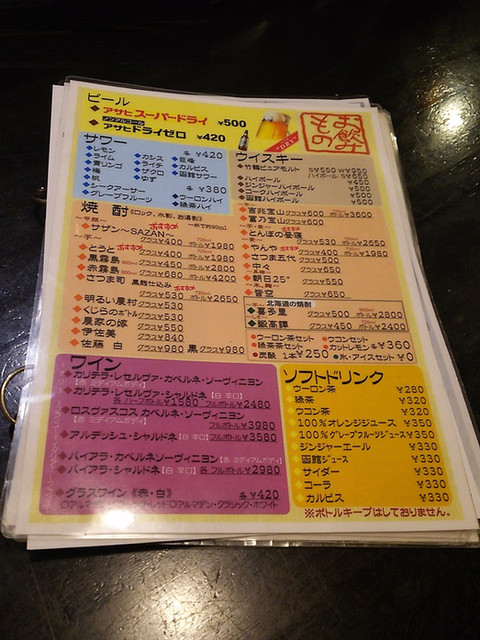 ビール
◆アサヒスーパードライ ¥500
ノンアルコール
◆アサヒドライゼロ ¥420
DRY
お飲みもの
サワー 各¥420
◆レモン
◆ライム
◆青りんご
◆梅
◆桃
◆カシス
◆ライチ
◆ザクロ
◆ゆず
◆巨峰
◆カルピス
◆函館サワー
各¥380
◆シークアーサー
◆グレープフルーツ
◆ウーロンハイ
◆緑茶ハイ
ウイスキー
◆竹鶴ピュアモルト S¥550 W¥950
ハイボール¥650
◆ハイボール ¥450
◆ジンジャーハイボール ¥500
◆コークハイボール ¥500
◆函館ハイボール ¥500
焼酎 (ロック、水割、お湯割) 一杯で約90ml
おすすめ
◆サザン~SAZAN~ グラス¥400
◆とうと グラス¥400 ボトル¥1980
◆黒霧島 グラス¥450 ボトル¥2800
◆赤霧島 グラス¥680 ボトル¥4200
◆さつま司 黒麹仕込み グラス¥530
◆明るい農村 グラス¥530 ボトル¥2650
◆くじらのボトル グラス¥530
◆農家の嫁 グラス¥550
◆伊佐美 グラス¥840
◆佐藤 白 グラス¥980 黒グラス¥980
◆吉兆宝山 グラス¥600 ボトル¥3600
◆富乃宝山 グラス¥600
◆とんぼの昼寝 グラス¥530 ボトル¥2650
◆やんや グラス¥400 ボトル¥1980
◆さつま五代 グラス¥500
◆中々 グラス¥650
◆朝日25° グラス¥550
◆皆空 グラス¥650
北海道の焼酎
◆喜多里 グラス¥500 ボトル¥2800
◆鍛高譚 グラス¥500 ボトル¥2400
●ウーロン茶セット ●ウコンセット
●緑茶茶セット ●カットレモン 各¥360
●炭酸 1本¥250 ●氷・アイスセット ¥0
ワイン
◆カリテラ・レセルヴァ・カベルネ・ソーヴィニヨン
【赤 ミディアムボディ】
◆カリテラ・レセルヴァ・シャルドネ【白 辛口】
各 ハーフボトル¥1580 フルボトル¥2480
◆ロスヴァスコス カベルネ・ソーヴィニヨン
【赤 ミディアムボディ】 フルボトル¥3980
◆アルデッシュ・シャルドネ【白 辛口】フルボトル¥3580
◆バイアラ・カベルネソーヴィニヨン【赤 ミディアムボディ】
◆バイアラ・シャルドネ【白 辛口】各 フルボトル¥2980
◆グラスワイン《赤・白》 各¥420
ソフトドリンク
◆ウーロン茶 ¥280
◆緑茶 ¥320
◆ウコン茶 ¥320
◆100%オレンジジュース ¥350
◆100%グレープフルーツジュース¥350
◆ジンジャーエール ¥330
◆函館ジュース ¥330
◆サイダー ¥330
◆コーラ ¥330
◆カルピス ¥330
※ボトルキープはしておりません。